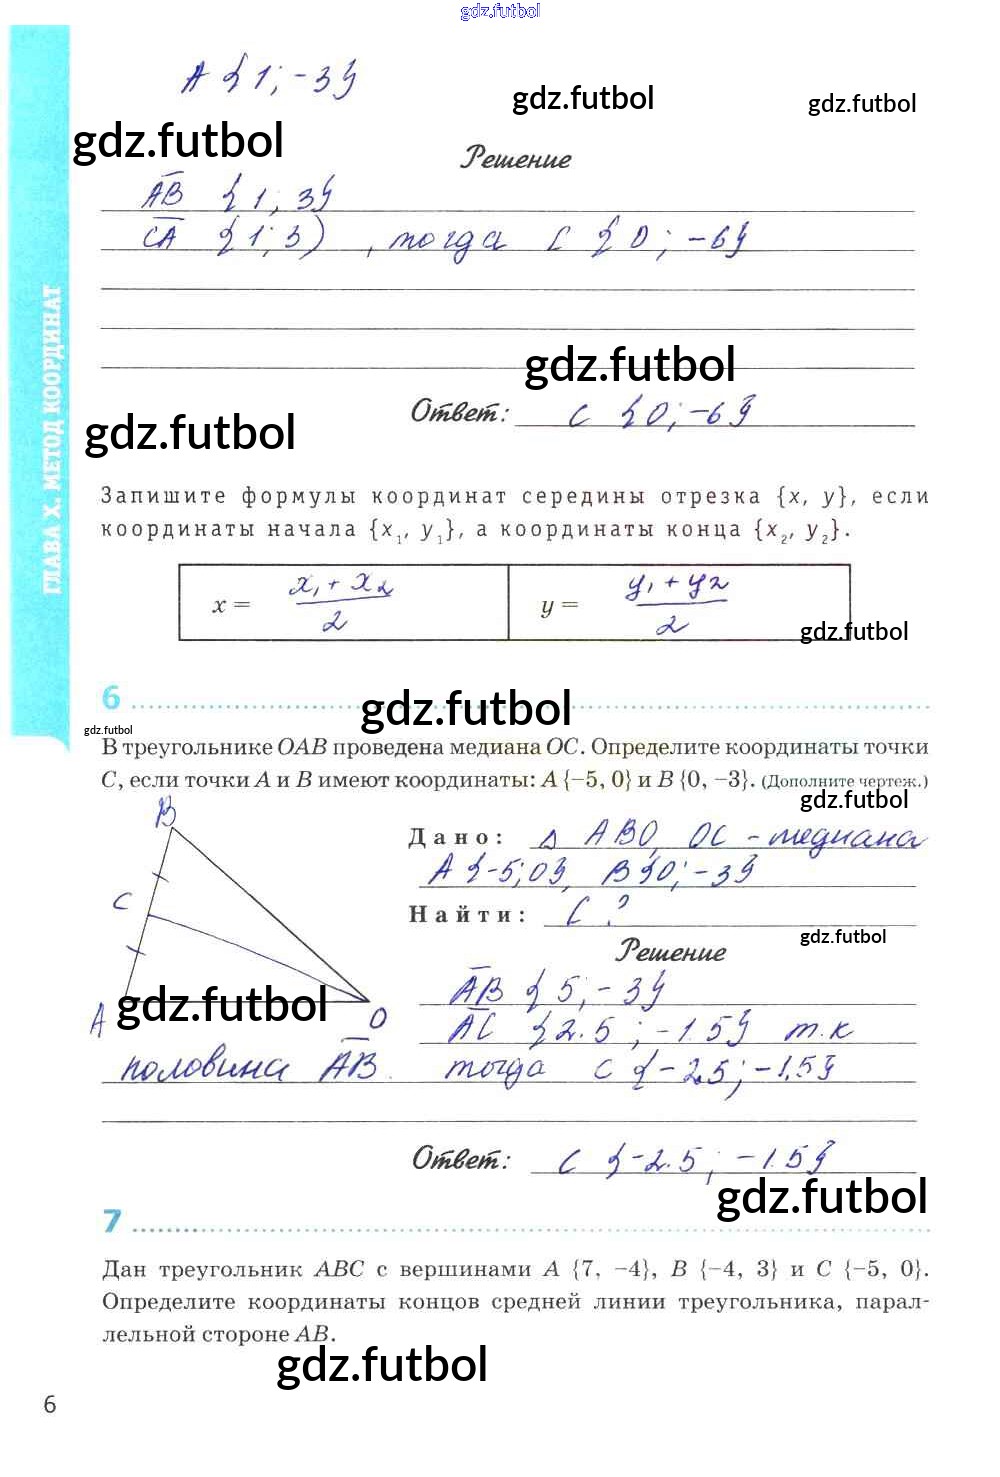 gdz.futbol
A {1; -3}
gdz.futbol
gdz.futbol
gdz.futbol
Решение
AB {1; 3}
CA {1; 3) , тогда C {0; -6}
gdz.futbol
Ответ: C {0; -6}
gdz.futbol
ГЛАВА X. МЕТОД КООРДИНАТ
Запишите формулы координат середины отрезка {x, y}, если
координаты начала {x₁, y₁}, а координаты конца {x₂, y₂}.
x = x₁ + x₂ / 2
y = y₁ + y₂ / 2
gdz.futbol
6
gdz.futbol
gdz.futbol
В треугольнике OAB проведена медиана OC. Определите координаты точки
C, если точки A и B имеют координаты: A {–5, 0} и B {0, –3}. (Дополните чертеж.)
gdz.futbol
B
C
A
O
Дано: Δ ABO, OC - медиана
A {-5; 0}, B {0; -3}
Найти: C ?
gdz.futbol
Решение
AB {5; -3}
gdz.futbol
AC {2.5; -1.5} т.к
половина AB. тогда C {-2.5; -1.5}
Ответ: C {-2.5; -1.5}
gdz.futbol
7
Дан треугольник ABC с вершинами A {7, –4}, B {–4, 3} и C {–5, 0}.
Определите координаты концов средней линии треугольника, парал-
лельной стороне AB.
gdz.futbol
6